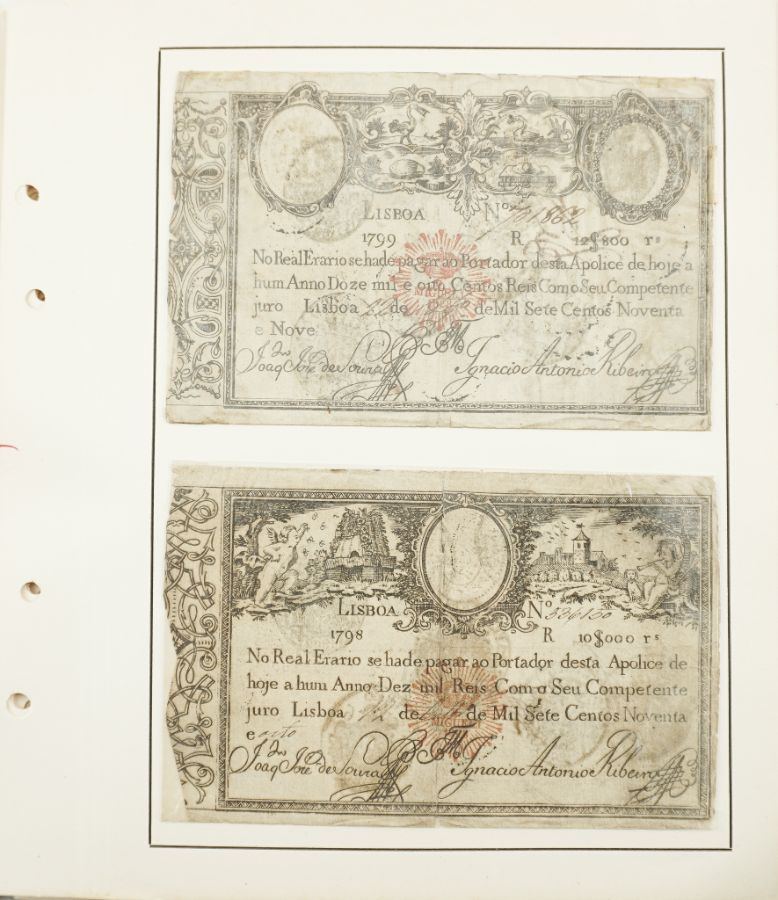 LISBOA Nº
1799 R 12$800 rs
No Real Erario se hade pagar ao Portador desta Apolice de hoje a
hum Anno Doze mil e oito Centos Reis Com o Seu Competente
juro Lisboa 22 de de Mil Sete Centos Noventa
e Nove
Joaq Jose de Souza Ignacio Antonio Ribeiro
LISBOA Nº
1798 R 10$000 rs
No Real Erario se hade pagar ao Portador desta Apolice de
hoje a hum Anno Dez mil Reis Com o Seu Competente
juro Lisboa de de Mil Sete Centos Noventa
e oito
Joaq Jose de Souza Ignacio Antonio Ribeiro